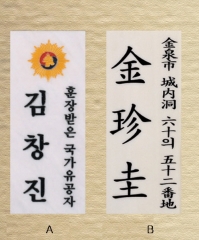 훈장받은 국가유공자
김창진
金泉市 城内洞 六十의 五十二番地
金珍圭
A
B